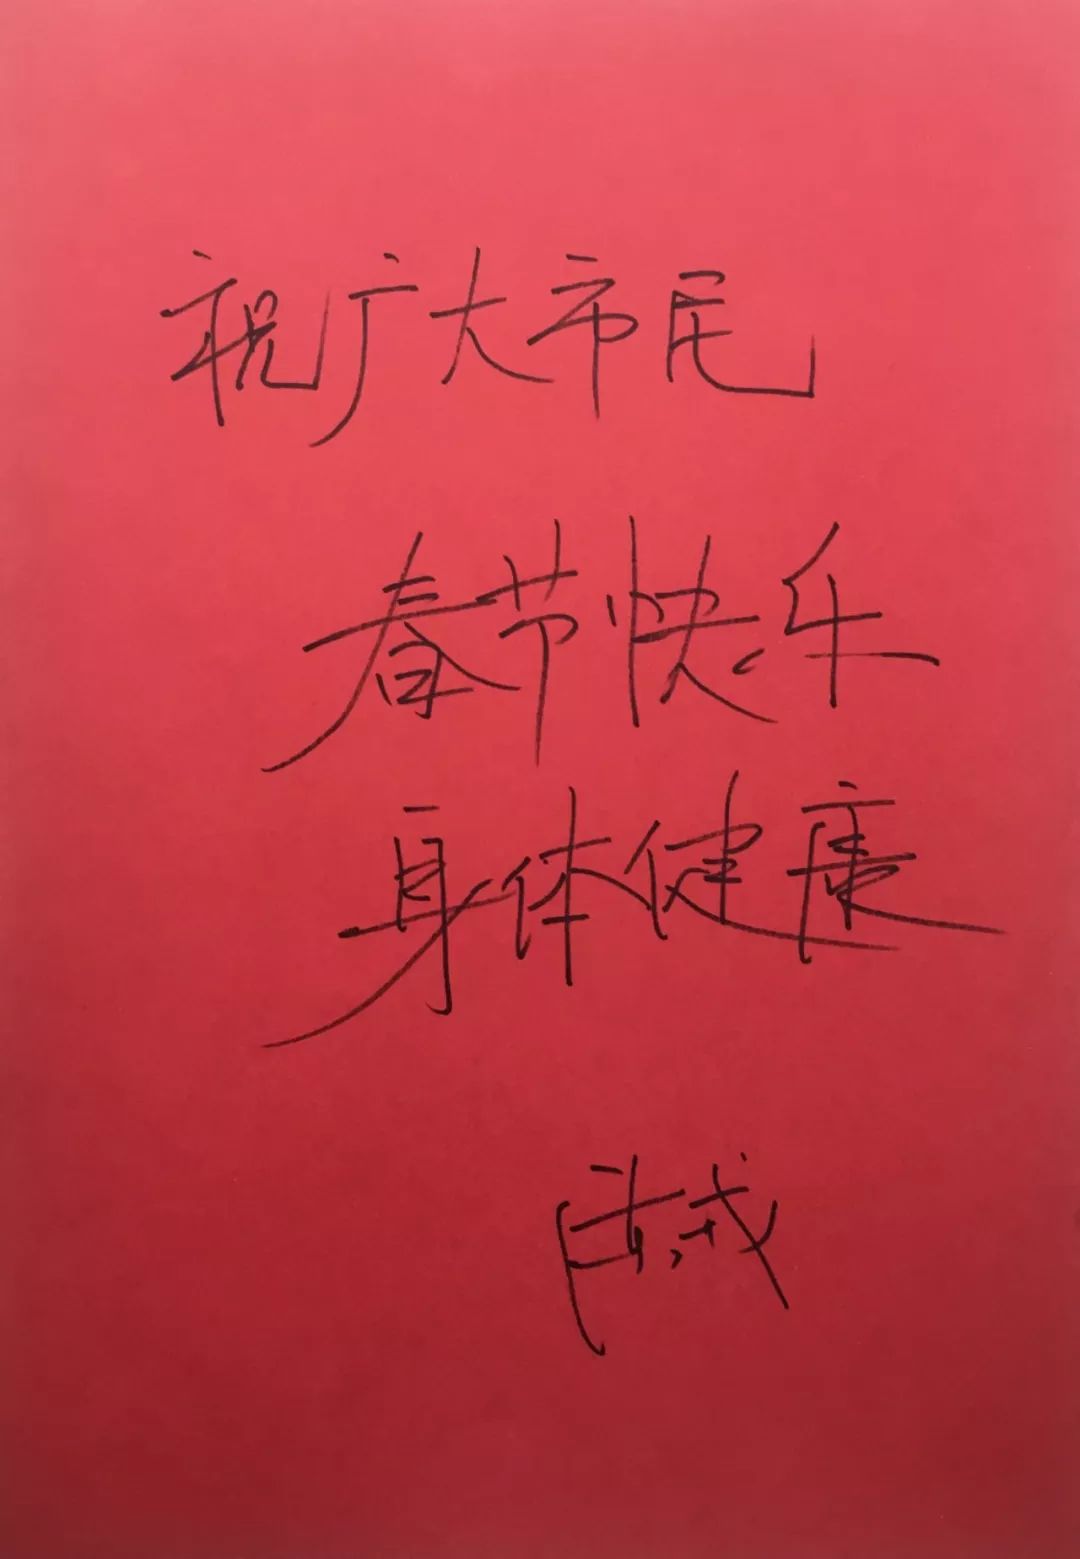 祝广大市民
春节快乐
身体健康